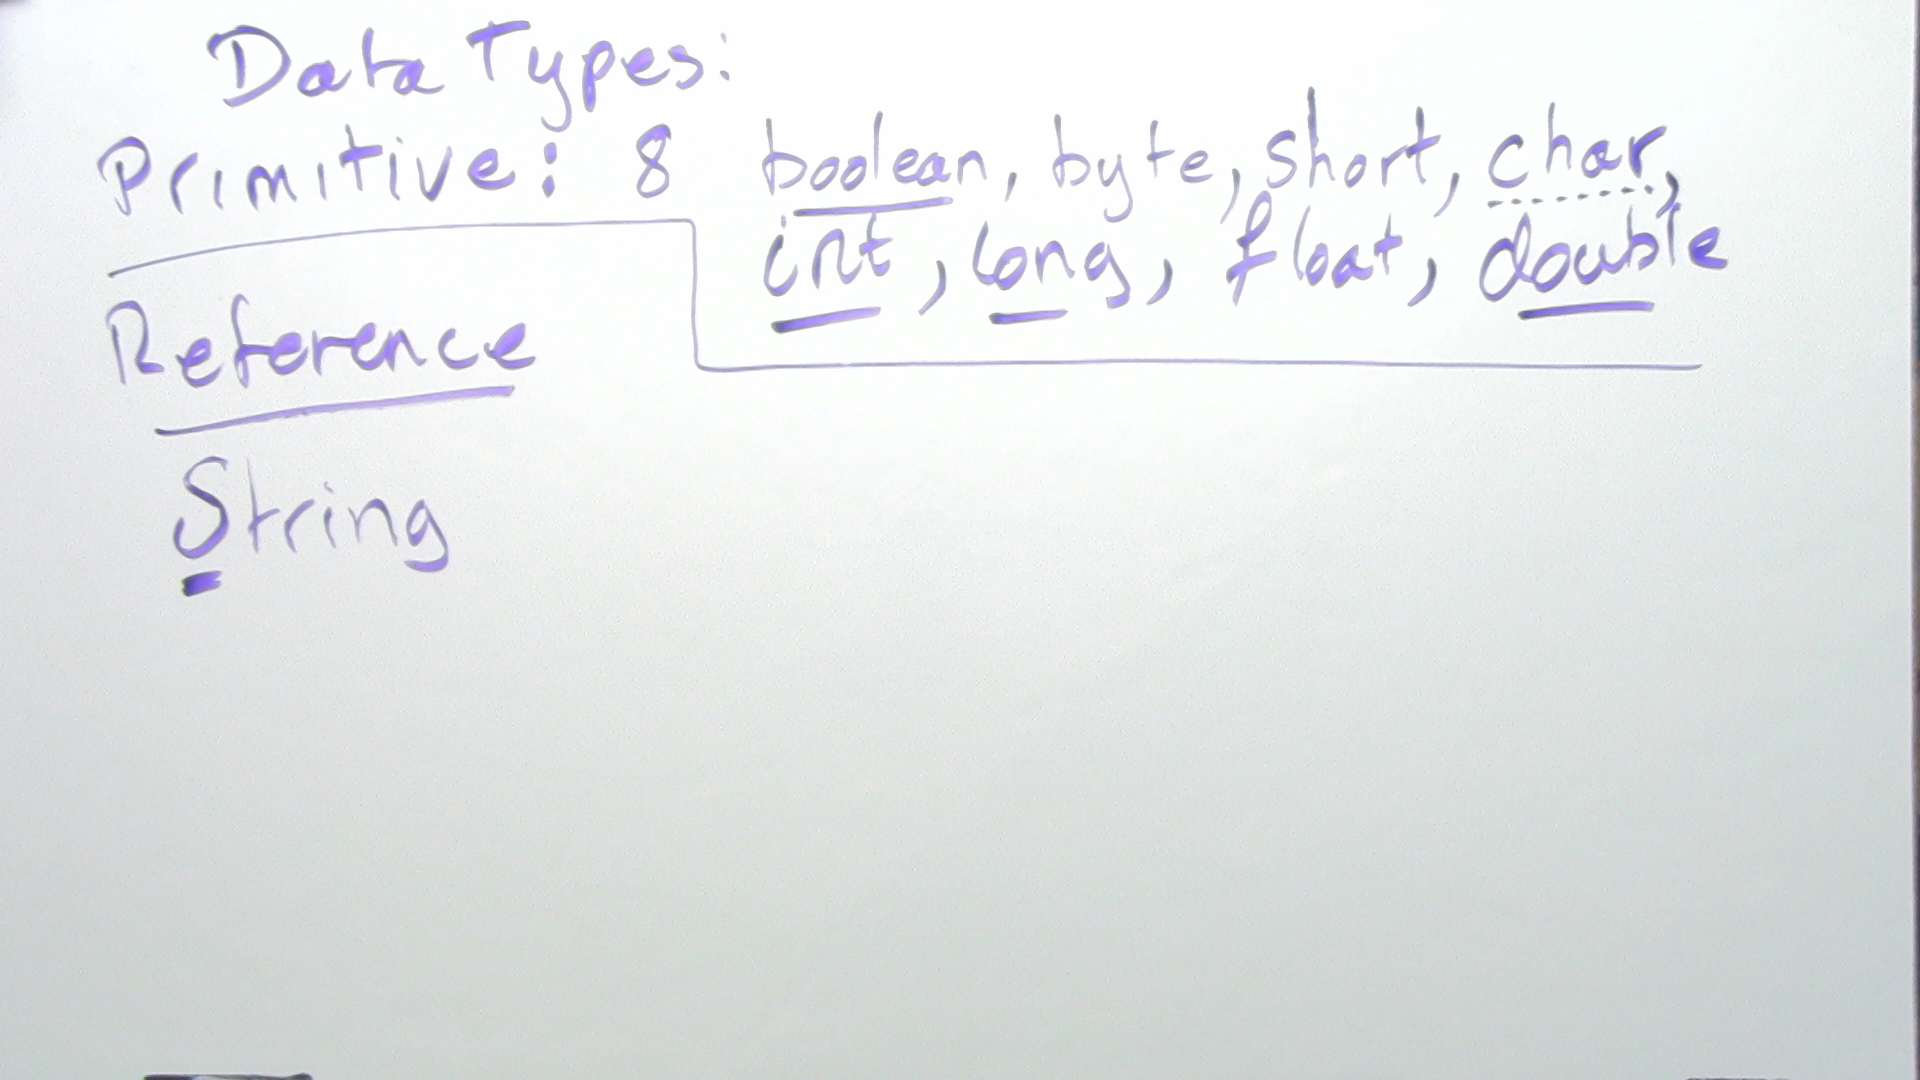 Data Types:
Primitive: 8 boolean, byte, short, char,
int, long, float, double
Reference
String